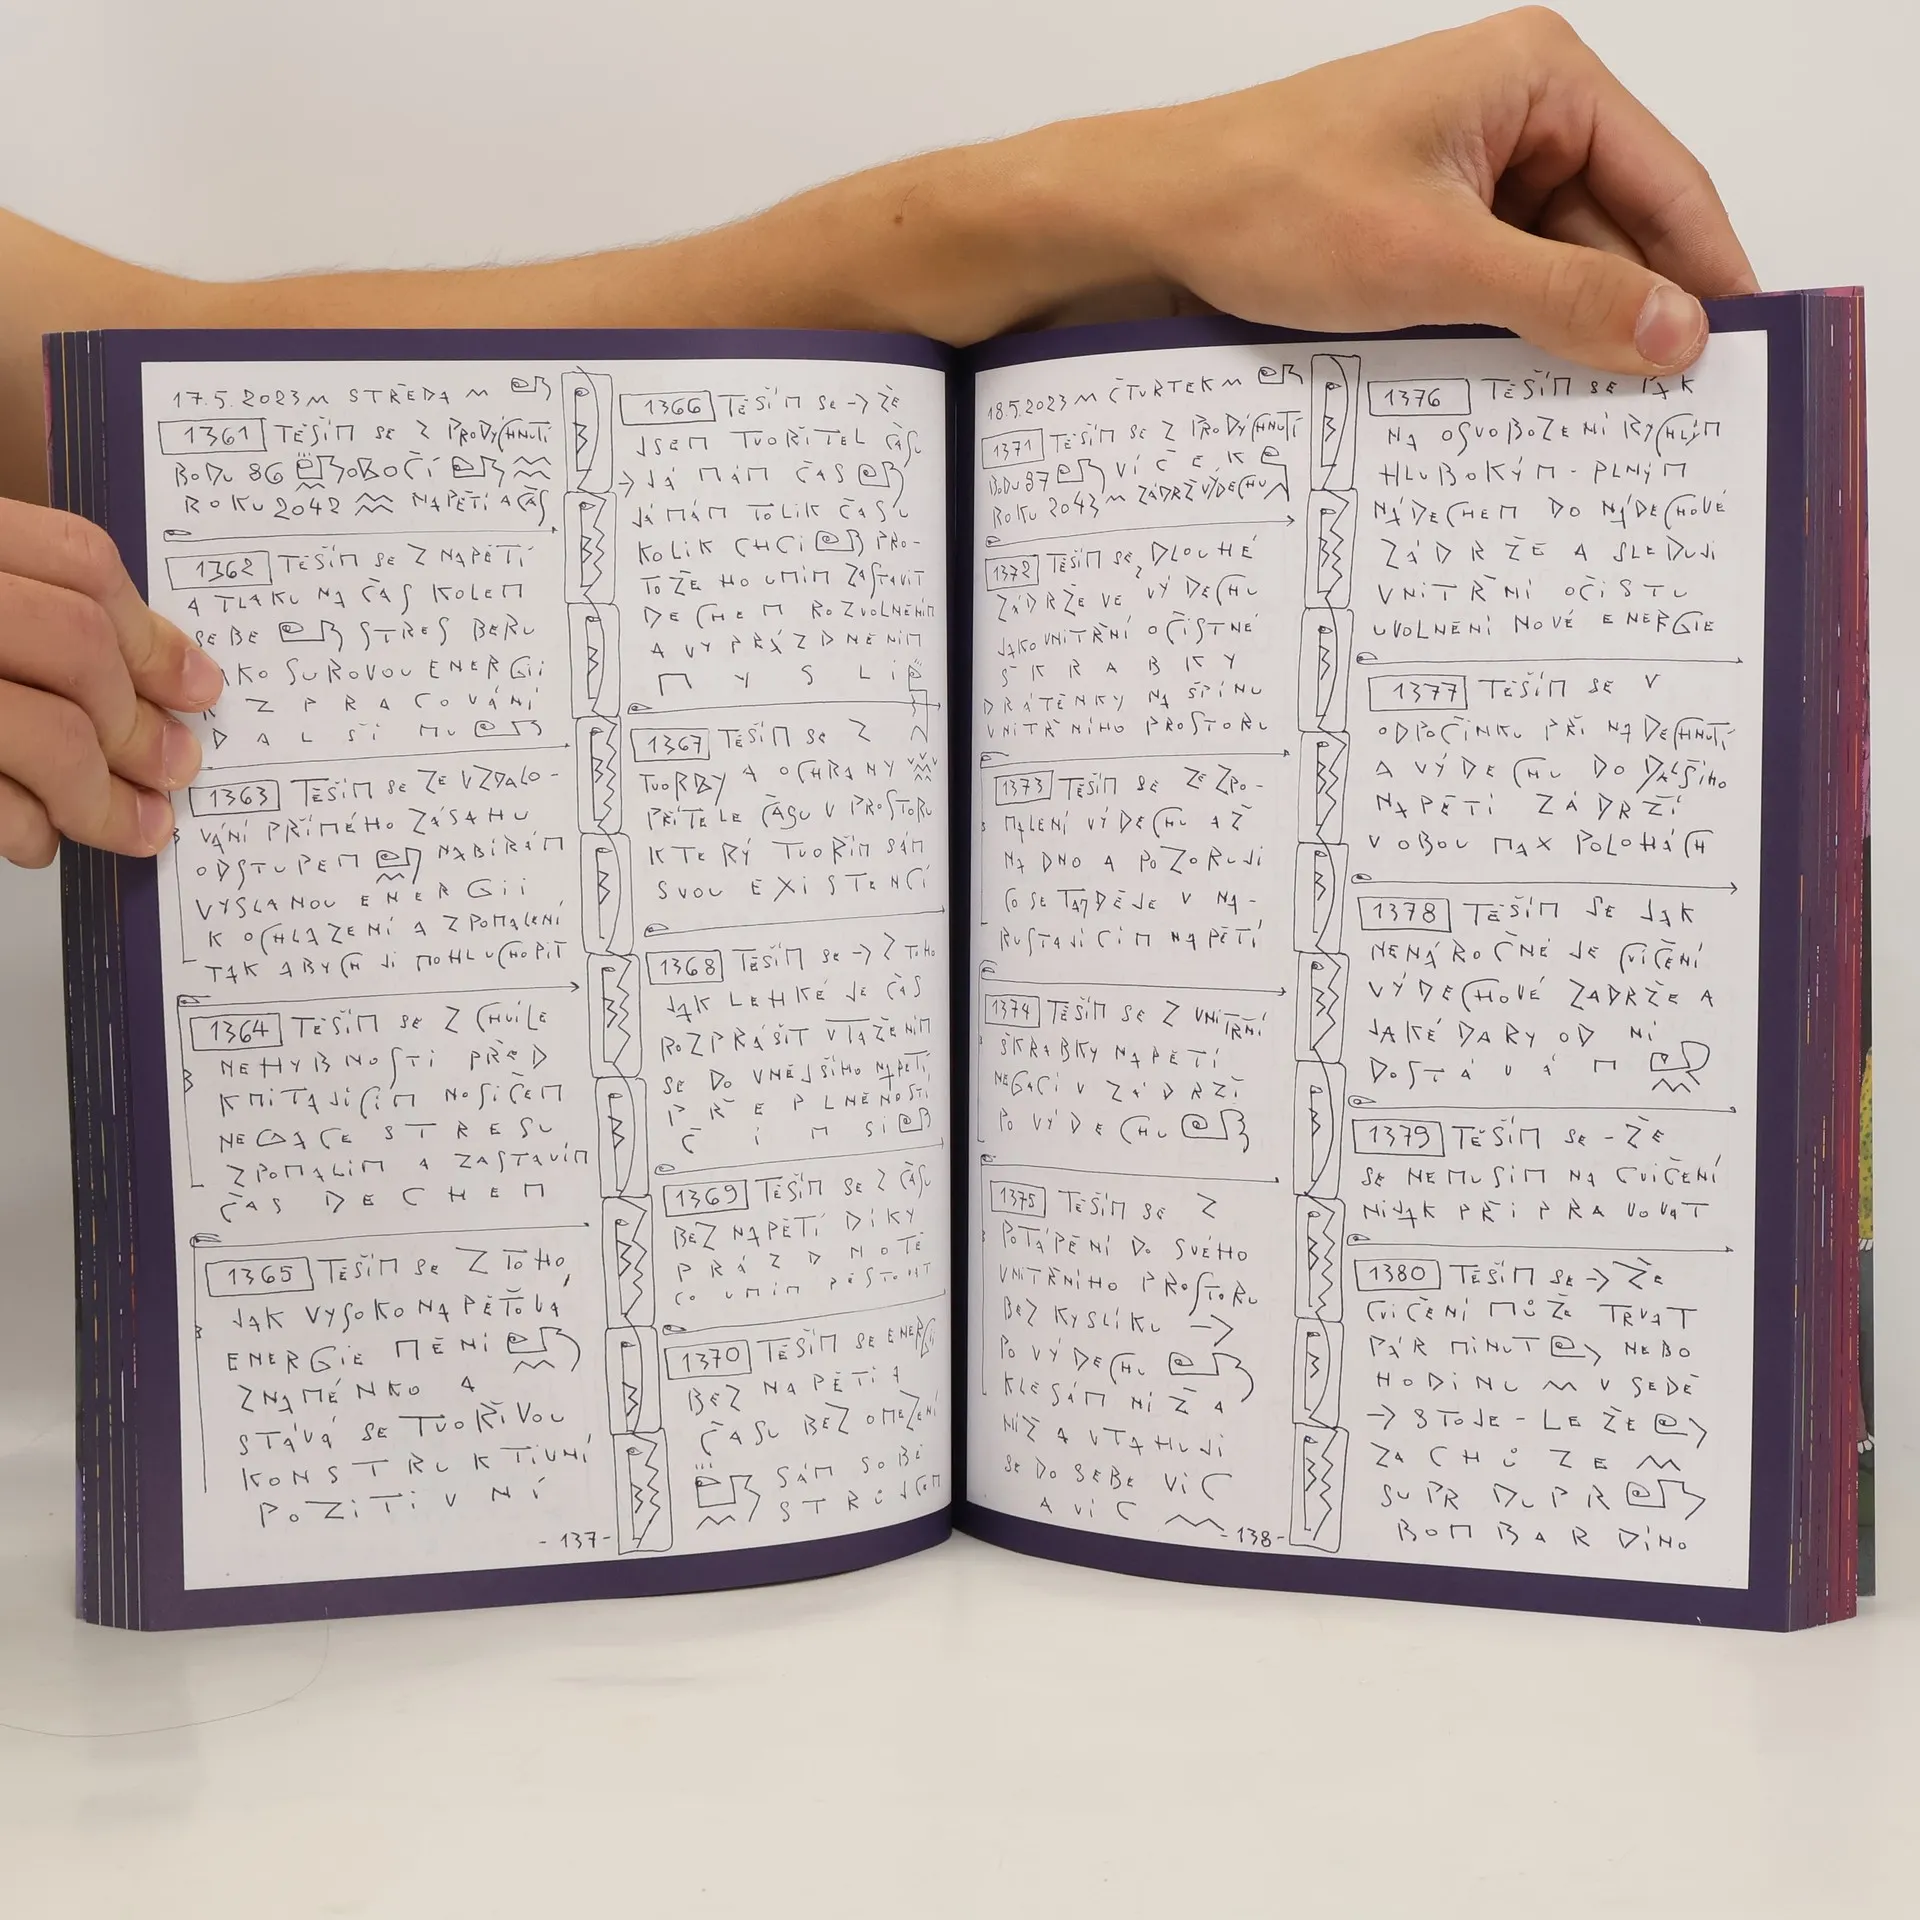 17.5.2023 STŘEDA
1361 TĚŠÍM SE Z PRODÝCHNUTÍ
BODU 86 OBOČÍ
ROKU 2042 NAPĚTÍ A ČAS
1362 TĚŠÍM SE Z NAPĚTÍ
A TLAKU NA ČAS KOLEM
SEBE STRES BERU
JAKO SUROVOU ENERGII
K ZPRACOVÁNÍ
DALŠÍMU
1363 TĚŠÍM SE ZE VZDALO-
VÁNÍ PŘÍMÉHO ZÁSAHU
ODSTUPEM NABÍRÁM
VYSLANOU ENERGII
K OCHLAZENÍ A ZPOMALENÍ
TAK ABYCH JI MOHL UCHOPIT
1364 TĚŠÍM SE Z CHVÍLE
NEHYBNOSTI PŘED
KMITAJÍCÍM NOSIČEM
NEGACE STRESU
ZPOMALÍM A ZASTAVÍM
ČAS DECHEM
1365 TĚŠÍM SE Z TOHO,
JAK VYSOKONAPĚŤOVÁ
ENERGIE MĚNÍ
ZNAMÉNKO A
STÁVÁ SE TVOŘIVOU
KONSTRUKTIVNÍ
POZITIVNÍ
-137-
1366 TĚŠÍM SE → ŽE
JSEM TVOŘITEL ČASU
→ JÁ MÁM ČAS
JÁ MÁM TOLIK ČASU
KOLIK CHCI PRO-
TOŽE HO UMÍM ZASTAVIT
DECHEM ROZVOLNĚNÍM
A VYPRÁZDNĚNÍM
MYSLI
1367 TĚŠÍM SE Z
TVORBY A OCHRANY
PŘÍTELE ČASU V PROSTORU
KTERÝ TVOŘÍM SÁM
SVOU EXISTENCÍ
1368 TĚŠÍM SE → Z TOHO
JAK LEHKÉ JE ČAS
ROZPRÁŠIT VTAŽENÍM
SE DO VNĚJŠÍHO NAPĚTÍ,
PŘEPLNĚNOSTI
ČÍMSI
1369 TĚŠÍM SE Z ČASU
BEZ NAPĚTÍ DÍKY
PRÁZDNOTĚ
CO UMÍM PĚSTOVAT
1370 TĚŠÍM SE ENERGIÍ
BEZ NAPĚTÍ A
ČASU BEZ OMEZENÍ
SÁM SOBĚ
STRŮJCEM
18.5.2023 ČTVRTEK
1371 TĚŠÍM SE Z PRODÝCHNUTÍ
BODU 87 VÍČEK
ROKU 2043 ZÁDRŽ VÝDECHU
1372 TĚŠÍM SE Z DLOUHÉ
ZÁDRŽE VE VÝDECHU
JAKO VNITŘNÍ OČISTNÉ
ŠKRABKY
DRÁTĚNKY NA ŠPÍNU
VNITŘNÍHO PROSTORU
1373 TĚŠÍM SE ZE ZPO-
MALENÍ VÝDECHU AŽ
NA DNO A POZORUJI
CO SE TAM DĚJE V NA-
RŮSTAJÍCÍM NAPĚTÍ
1374 TĚŠÍM SE Z VNITŘNÍ
ŠKRABKY NAPĚTÍ
NEGACÍ V ZÁDRŽI
PO VÝDECHU
1375 TĚŠÍM SE Z
POTÁPĚNÍ DO SVÉHO
VNITŘNÍHO PROSTORU
BEZ KYSLÍKU →
PO VÝDECHU
KLESÁM NÍŽ A
NÍŽ A VTAHUJI
SE DO SEBE VÍC
A VÍC
-138-
1376 TĚŠÍM SE JAK
NA OSVOBOZENÍ RYCHLÝM
HLUBOKÝM - PLNÝM
NÁDECHEM DO NÁDECHOVÉ
ZÁDRŽE A SLEDUJI
VNITŘNÍ OČISTU
UVOLNĚNÍ NOVÉ ENERGIE
1377 TĚŠÍM SE V
ODPOČINKU PŘI NADECHNUTÍ
A VÝDECHU DO DALŠÍHO
NAPĚTÍ ZÁDRŽÍ
V OBOU MAX POLOHÁCH
1378 TĚŠÍM SE JAK
NENÁROČNÉ JE CVIČENÍ
VÝDECHOVÉ ZADRŽE A
JAKÉ DARY OD NÍ
DOSTÁVÁM
1379 TĚŠÍM SE - ŽE
SE NEMUSÍM NA CVIČENÍ
NIJAK PŘIPRAVOVAT
1380 TĚŠÍM SE → ŽE
CVIČENÍ MŮŽE TRVAT
PÁR MINUT NEBO
HODINU V SEDĚ
→ STOJE - LEŽE
ZA CHŮZE
SUPR DUPR
BOMBARDINO